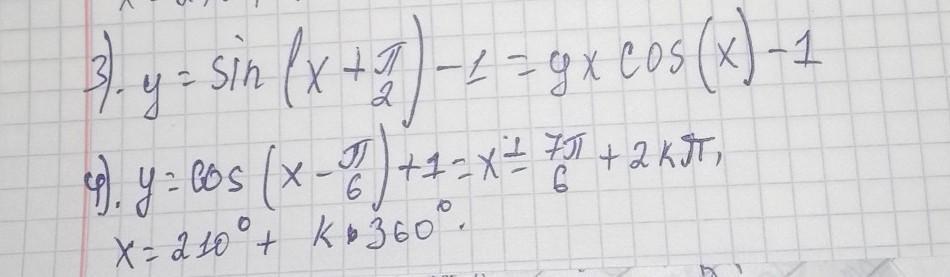 3). y = sin (x + π/2) - 1 = yx cos(x) - 1
4). y = cos (x - π/6) + 1 = x = 7π/6 + 2kπ,
x = 210° + k • 360°.